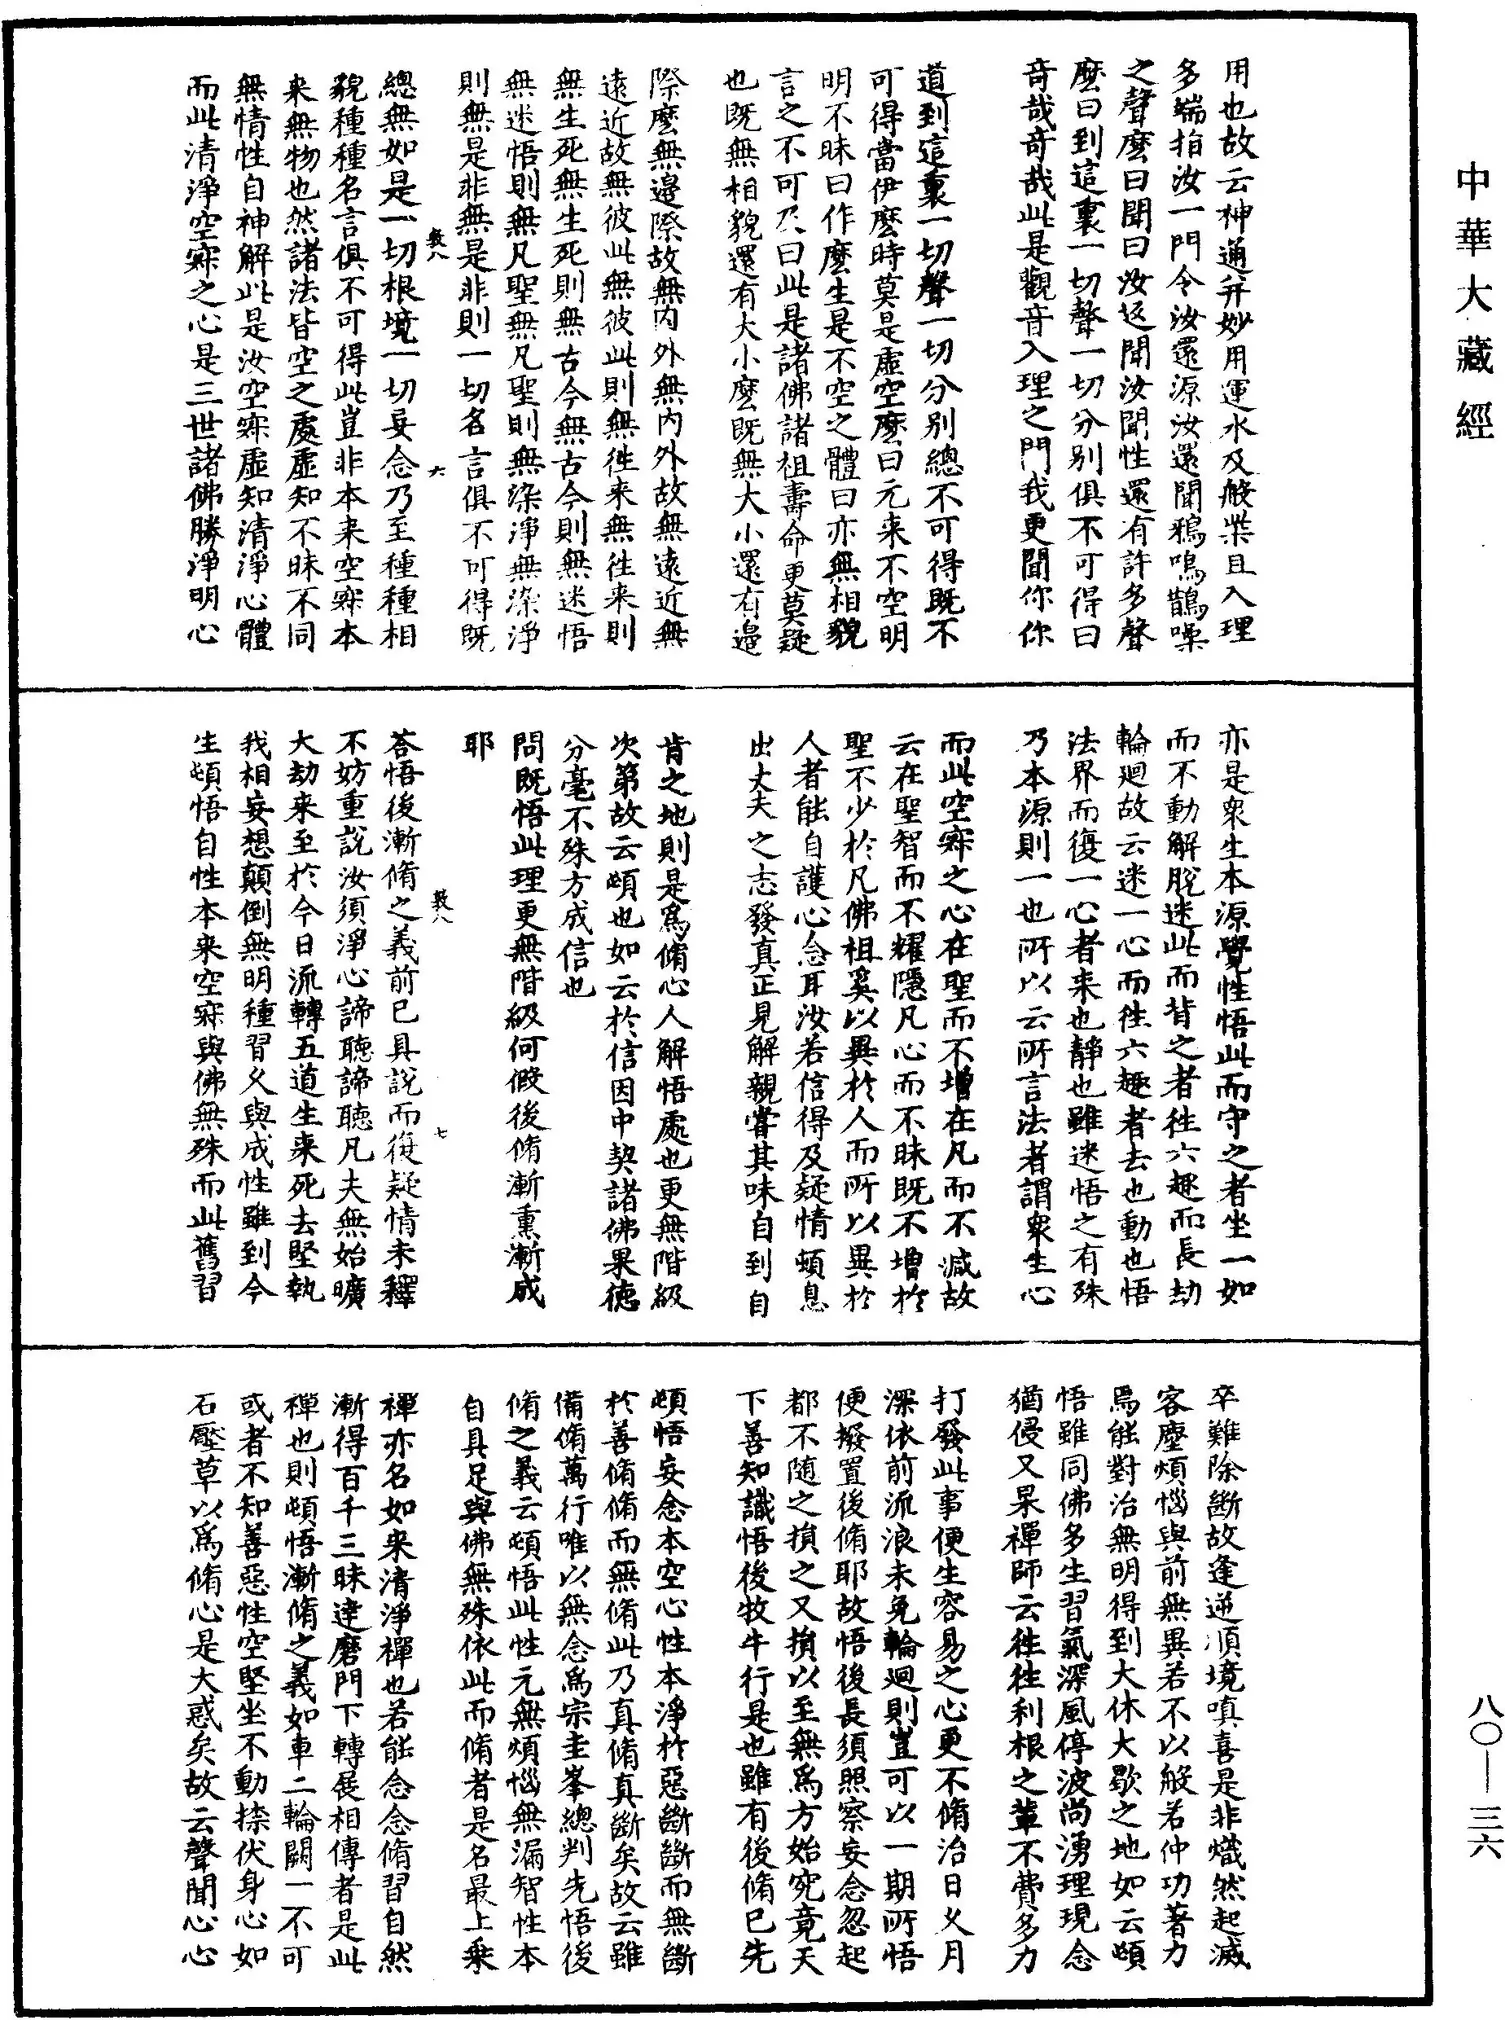 中華大藏經
用也故云神通并妙用運水及般柴且入理
多端指汝一門令汝還源汝還聞鵶鳴鵲噪
之聲麽曰聞曰汝返聞汝聞性還有許多聲
麽曰到這裏一切聲一切分別俱不可得曰
竒哉竒哉此是觀音入理之門我更聞你你
道到這裏一切聲一切分別總不可得既不
可得當伊麽時莫是虛空麽曰元来不空明
明不昧曰作麽生是不空之體曰亦無相貌
言之不可及曰此是諸佛諸祖壽命更莫疑
也既無相貌還有大小麽既無大小還有邊
際麽無邊際故無内外無内外故無遠近無
遠近故無彼此無彼此則無徃来無徃来則
無生死無生死則無古今無古今則無迷悟
無迷悟則無凡聖無凡聖則無染淨無染淨
則無是非無是非則一切名言俱不可得既
總無如是一切根境一切妄念乃至種種相
貌種種名言俱不可得此豈非本来空寂本
来無物也然諸法皆空之處虛知不昧不同
無情性自神解此是汝空寂虛知清淨心體
而此清淨空寂之心是三世諸佛勝淨明心
亦是衆生本源覺性悟此而守之者坐一如
而不動解脫迷此而背之者徃六趣而長劫
輪廻故云迷一心而徃六趣者去也動也悟
法界而復一心者来也靜也雖迷悟之有殊
乃本源則一也所以云所言法者謂衆生心
而此空寂之心在聖而不增在凡而不減故
云在聖智而不耀隱凡心而不昧既不增於
聖不少於凡佛祖奚以異於人而所以異於
人者能自護心念耳汝若信得及疑情頓息
出丈夫之志發真正見解親嘗其味自到自
肯之地則是爲脩心人解悟處也更無階級
次第故云頓也如云於信因中契諸佛果德
分毫不殊方成信也
問既悟此理更無階級何假後脩漸熏漸成
耶
答悟後漸脩之義前已具說而復疑情未釋
不妨重說汝須淨心諦聽諦聽凡夫無始曠
大劫来至於今日流轉五道生来死去堅執
我相妄想顛倒無明種習久與成性雖到今
生頓悟自性本来空寂與佛無殊而此舊習
卒難除斷故逢逆順境嗔喜是非熾然起滅
客塵煩惱與前無異若不以般若仲功著力
爲能對治無明得到大休大歇之地如云頓
悟雖同佛多生習氣深風停波尚湧理現念
猶侵又杲禪師云徃徃利根之輩不費多力
打發此事便生容易之心更不脩治日久月
深依前流浪未免輪廻則豈可以一期所悟
便撥置後脩耶故悟後長須照察妄念忽起
都不隨之損之又損以至無爲方始究竟天
下善知識悟後牧牛行是也雖有後脩已先
頓悟妄念本空心性本淨於惡斷斷而無斷
於善脩脩而無脩此乃真脩真斷矣故云雖
備脩萬行唯以無念爲宗圭峯總判先悟後
脩之義云頓悟此性元無煩惱無漏智性本
自具足與佛無殊依此而脩者是名最上乘
禪亦名如来清淨禪也若能念念脩習自然
漸得百千三昧達磨門下轉展相傳者是此
禪也則頓悟漸脩之義如車二輪闕一不可
或者不知善惡性空堅坐不動捺伏身心如
石壓草以爲脩心是大惑矣故云聲聞心心
八〇—三六